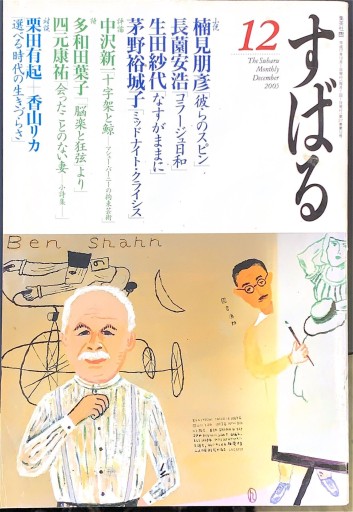 すばる
12
The Subaru
Monthly
December
2005
小説
楠見朋彦「彼らのスピン」
長薗安浩「コラージュ日和」
生田紗代「なすがままに」
茅野裕城子「ミッドナイト・クライシス」
評論
中沢新一「十字架と鯨
詩
多和田葉子「「脳楽と狂弦」より」
四元康祐「会ったことのない妻——小詩集——」
対談
栗田有起+香山リカ
「選べる時代の生きづらさ」
Ben Shahn